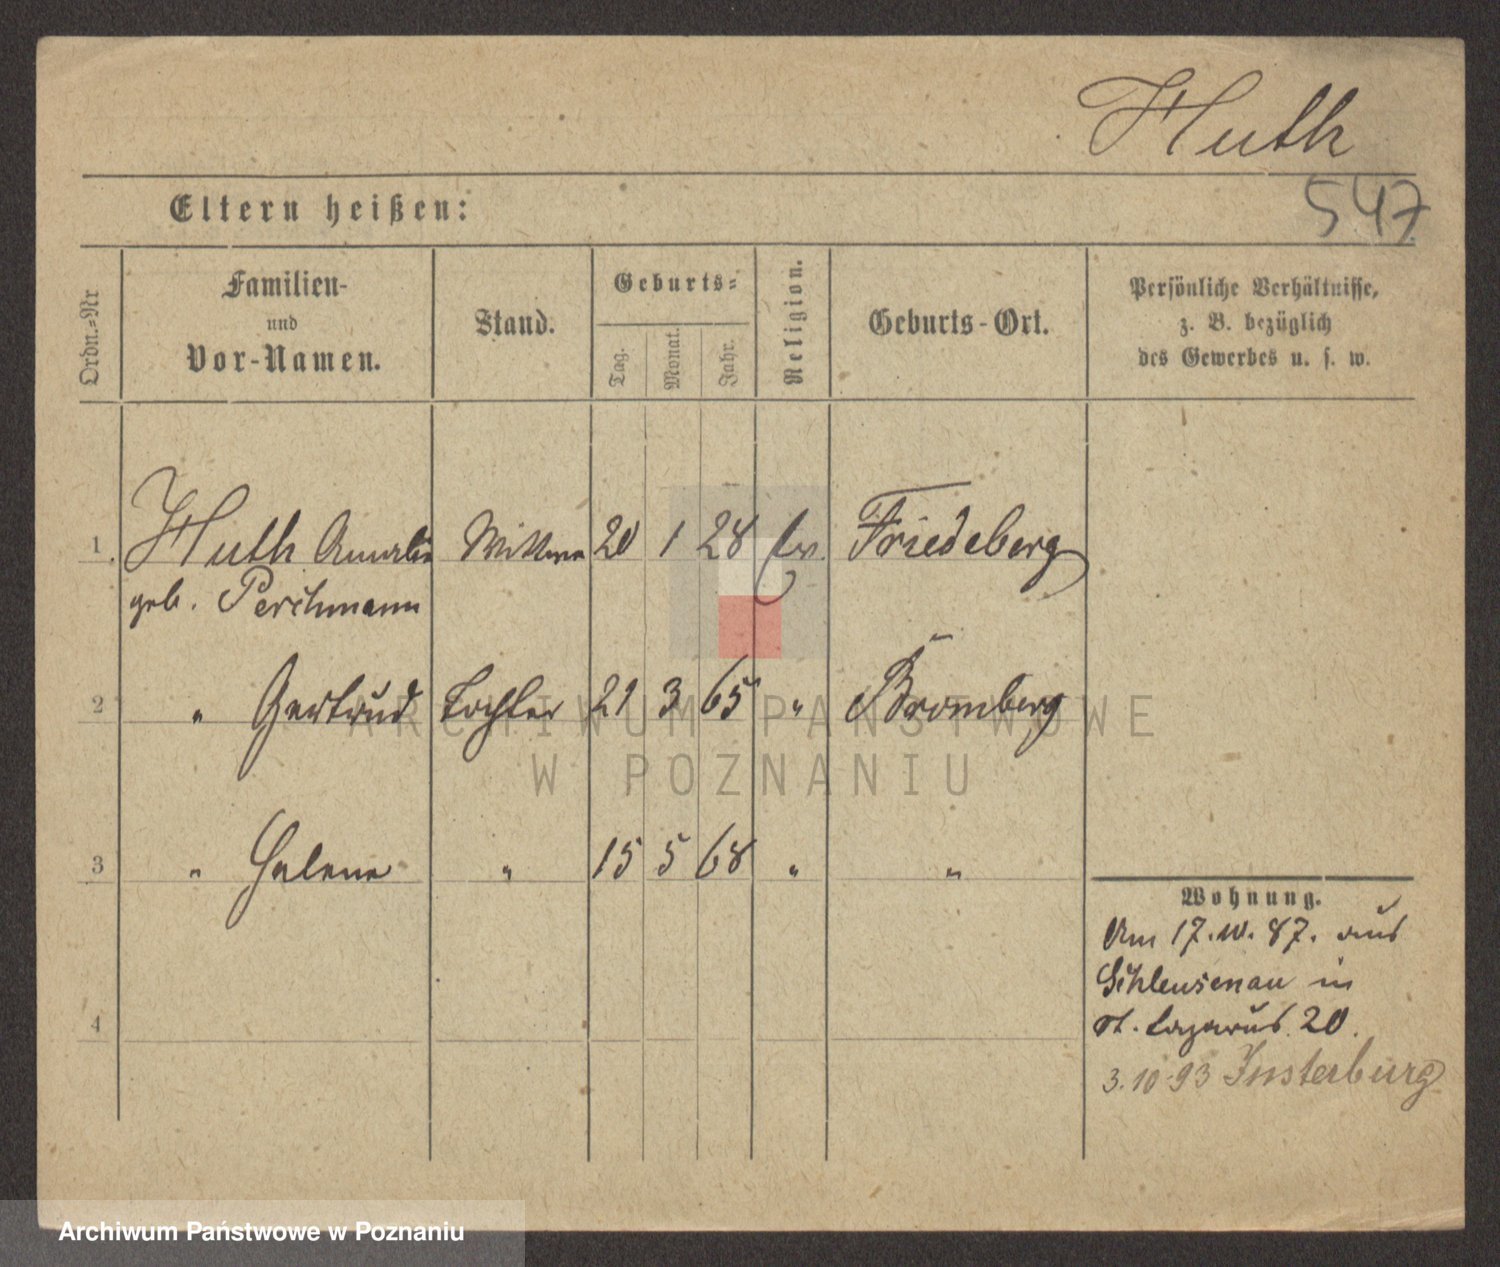 Huth
547
Eltern heißen:
Ordn.=Nr
Familien-
und
Vor-Namen.
Stand.
Geburts=
Tag.
Monat.
Jahr.
Religion.
Geburts-Ort.
Persönliche Verhältnisse,
z. B. bezüglich
des Gewerbes u. s. w.
1. Huth Amalie Wittwe 20 1 28 ev. Friedeberg
geb. Perschmann
2 " Gertrud Tochter 21 3 65 " Bromberg
3 " Helene " 15 5 68 " "
4
Wohnung.
Am 17. 87. aus
Schleusenau in
St. Lazarus 20.
3.10.93 Insterburg
ARCHIWUM PAŃSTWOWE
W POZNANIU
Archiwum Państwowe w Poznaniu